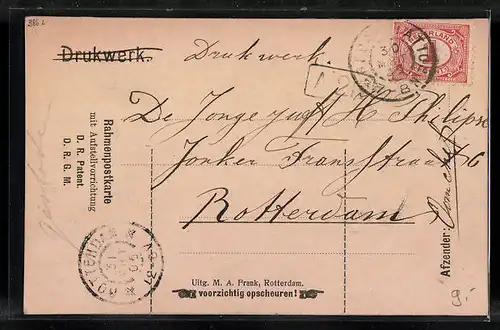 386 L
Drukwerk.
Drukwerk.
NEDERLAND
De Jonge juff H. Philipse
Jonker Fransstraat 76
Rotterdam
Rahmenpostkarte
mit Aufstellvorrichtung
D. R. Patent.
D. R. G. M.
Afzender:
ROTTERDAM
Uitg. M. A. Frank, Rotterdam.
voorzichtig opscheuren!
9.-